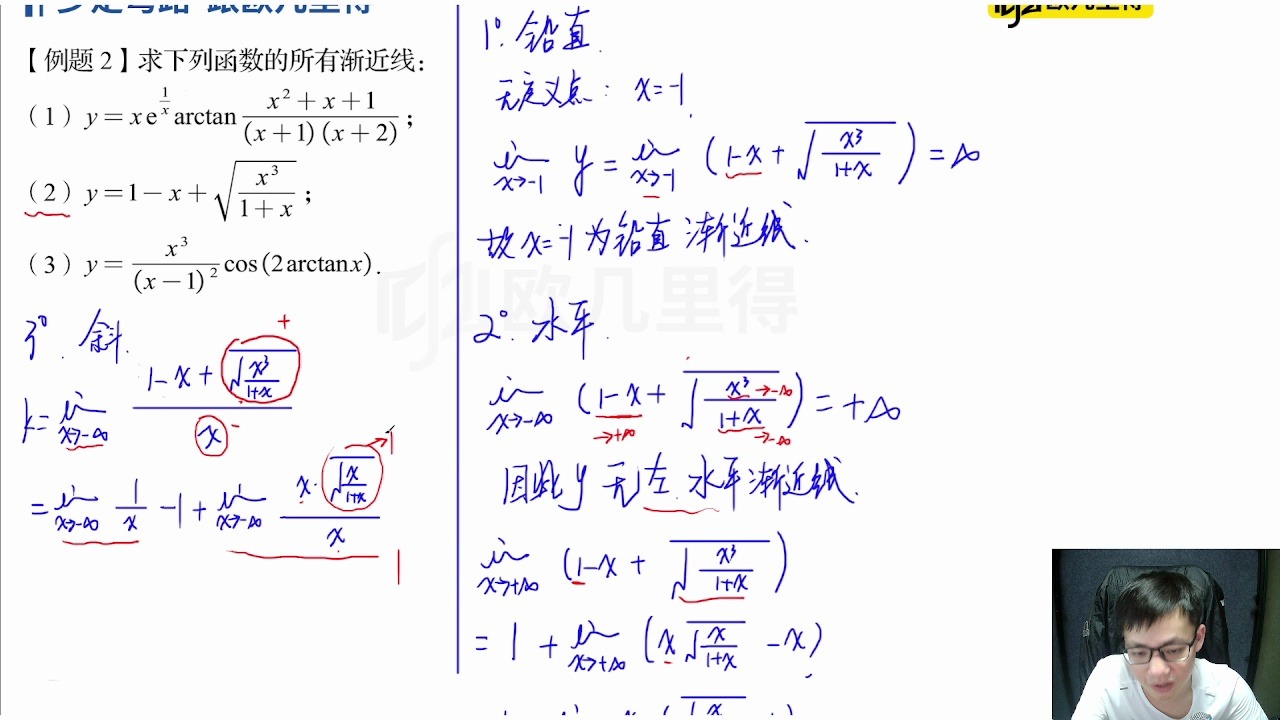 少走弯路 跟欧几里得
欧几里得
【例题 2】求下列函数的所有渐近线:
(1) $y = x e^{\frac{1}{x}} \arctan \frac{x^2+x+1}{(x+1)(x+2)}$;
(2) $y = 1 - x + \sqrt{\frac{x^3}{1+x}}$;
(3) $y = \frac{x^3}{(x-1)^2} \cos(2\arctan x)$.
3°. 斜.
+
$k = \lim_{x \to -\infty} \frac{1-x+\sqrt{\frac{x^3}{1+x}}}{x}$ -
$= \lim_{x \to -\infty} \frac{1}{x} - 1 + \lim_{x \to -\infty} \frac{x \cdot \sqrt{\frac{x}{1+x}}}{x}$ → 1
1
1°. 铅直.
无定义点: $x = -1$.
$\lim_{x \to -1} y = \lim_{x \to -1} (1-x+\sqrt{\frac{x^3}{1+x}}) = \infty$
故 $x = -1$ 为铅直渐近线.
2°. 水平.
$\lim_{x \to -\infty} (1-x+\sqrt{\frac{x^3}{1+x}}) = +\infty$
→+∞ →-∞ →-∞
因此 y 无左水平渐近线.
$\lim_{x \to +\infty} (1-x+\sqrt{\frac{x^3}{1+x}})$
$= 1 + \lim_{x \to +\infty} (x\sqrt{\frac{x}{1+x}} - x)$
欧几里得